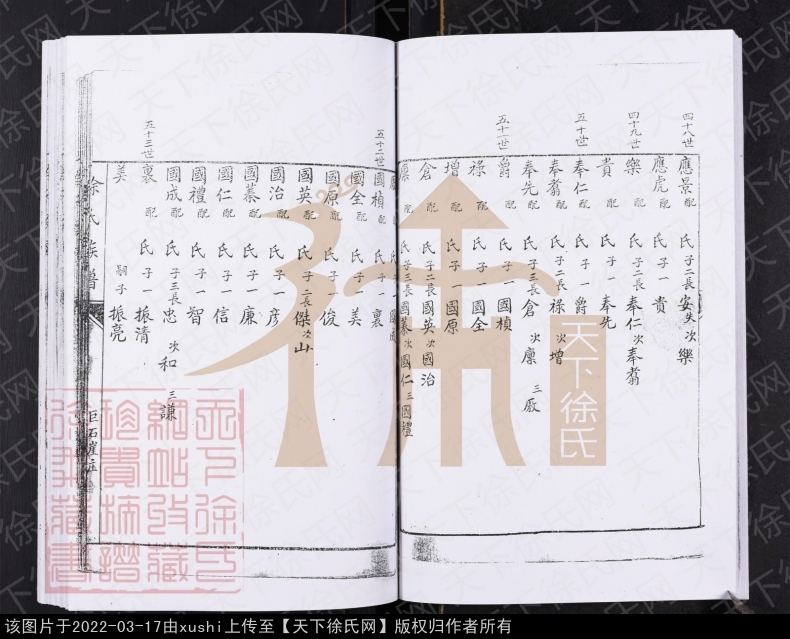 四十八世
應景 配 氏 子二 長安失 次樂
應虎 配 氏 子一 貴
四十九世
樂 配 氏 子二 長奉仁 次奉翥
貴 配 氏 子一 奉先
五十世
奉仁 配 氏 子一 爵
奉翥 配 氏 子二 長祿 次增
奉先 配 氏 子三 長倉 次廩 三厫
五十一世
爵 配 氏 子一 國楨
祿 配 氏 子一 國全
增 配 氏 子一 國原
倉 配 氏 子二 長國英 次國治
廩 配 氏 子三 長國蓁 次國仁 三國禮
配 氏 子一 國成
五十二世
國楨 配 氏 子一 裏
國全 配 氏 子一 美
國原 配 氏 子一 俊
國英 配 氏 子二 長傑 次山
國治 配 氏 子一 彦
國蓁 配 氏 子一 廉
國仁 配 氏 子一 信
國禮 配 氏 子一 智
國成 配 氏 子三 長忠 次和 三謙
五十三世
裏 配 氏 子一 振清
美 嗣子 振亮
徐氏族譜
巨石崖庄
天下徐氏
天下徐氏网
该图片于2022-03-17由xushi上传至【天下徐氏网】版权归作者所有